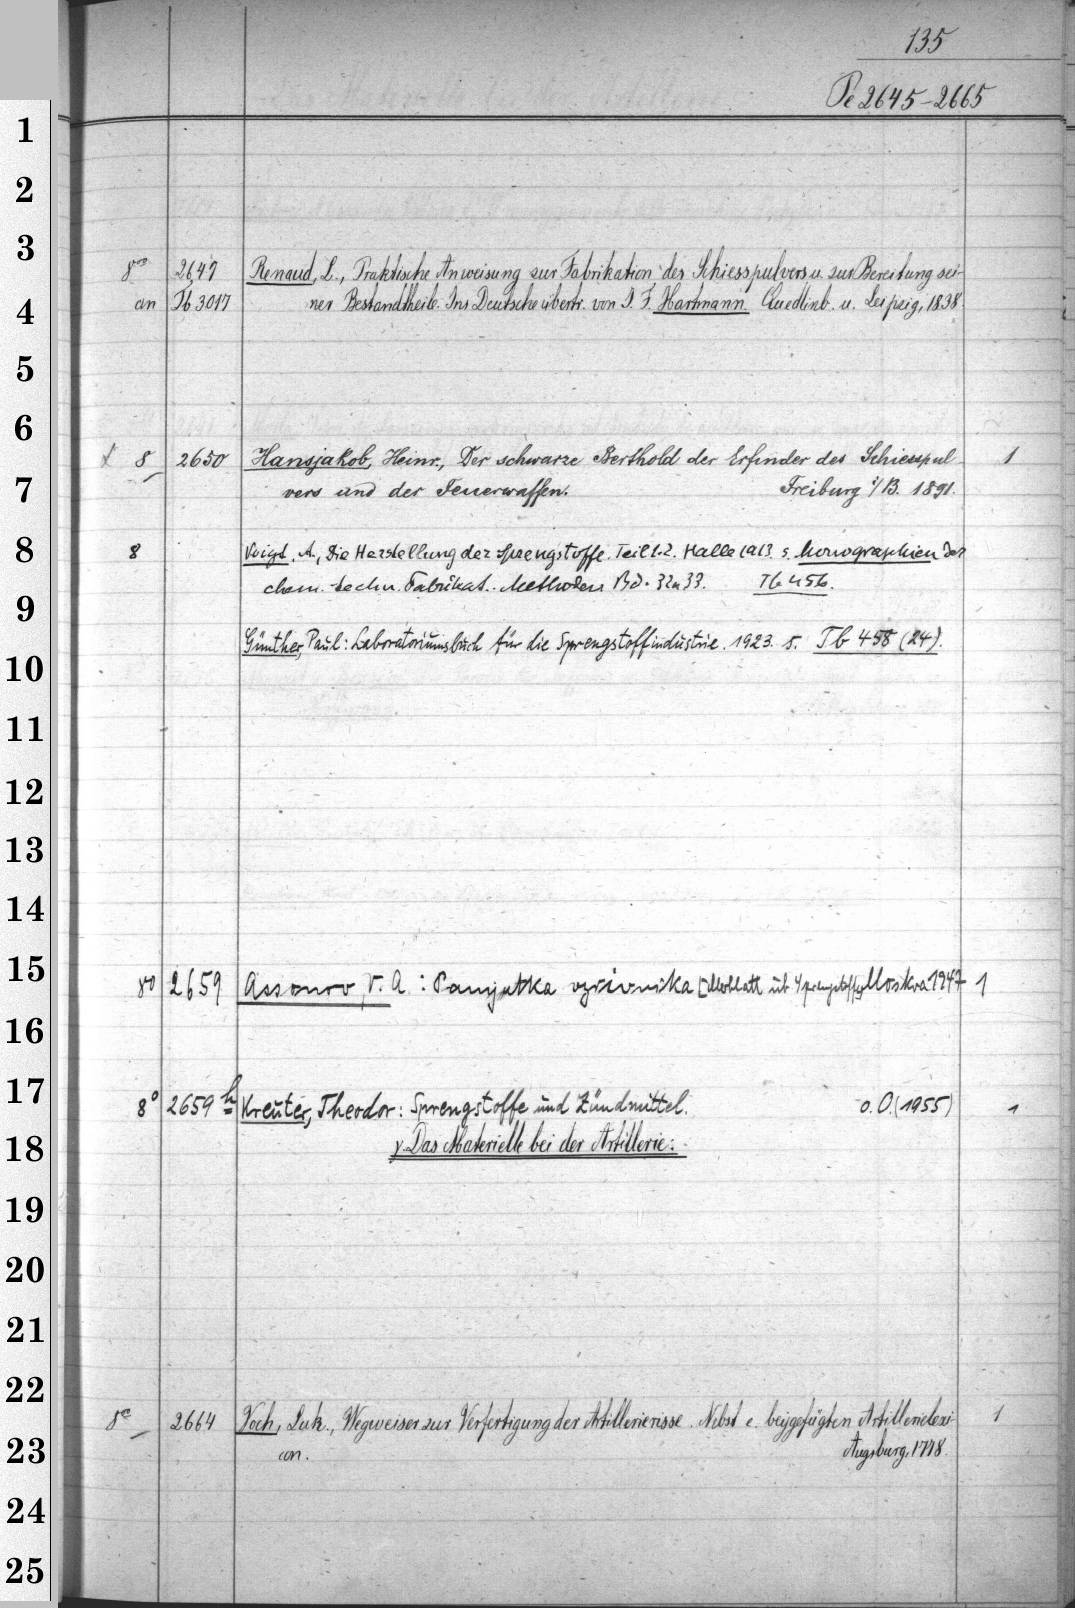 135
Pe 2645-2665
1
2
3
8vo 2647 Renaud, L., Praktische Anweisung zur Fabrikation des Schiesspulvers u. zur Bereitung sei-
an Tb 3017 ner Bestandtheile. Ins Deutsche übertr. von I. F. Hartmann. Quedlinb. u. Leipzig, 1838
4
5
6
8 2650 Hansjakob, Heinr., Der schwarze Berthold der Erfinder des Schiesspul- 1
7 vers und der Feuerwaffen. Freiburg i/B. 1891.
8 8 Voigt, A., Die Herstellung der Sprengstoffe. Teil 1.2. Halle 1913 s. Monographien der
chem.-techn. Fabrikat.-Methoden Bd. 32 u 33. Tb 456.
9
Günther, Paul: Laboratoriumsbuch für die Sprengstoffindustrie. 1923. s. Tb 458 (24).
10
11
12
13
14
15 8o 2659 Assonov, V. A.: Pamjatka vzrivnika [Merkblatt üb. Sprengstoffe] Moskva 1947 1
16
17 8o 2659 h Kreuter, Theodor: Sprengstoffe und Zündmittel. o. O. (1955) 1
18 γ. Das Materielle bei der Artillerie:
19
20
21
22
8o 2664 Voch, Luk., Wegweiser zur Verfertigung der Artillerierisse. Nebst e. beygefügten Artillerielexi- 1
23 con. Augsburg, 1778.
24
25